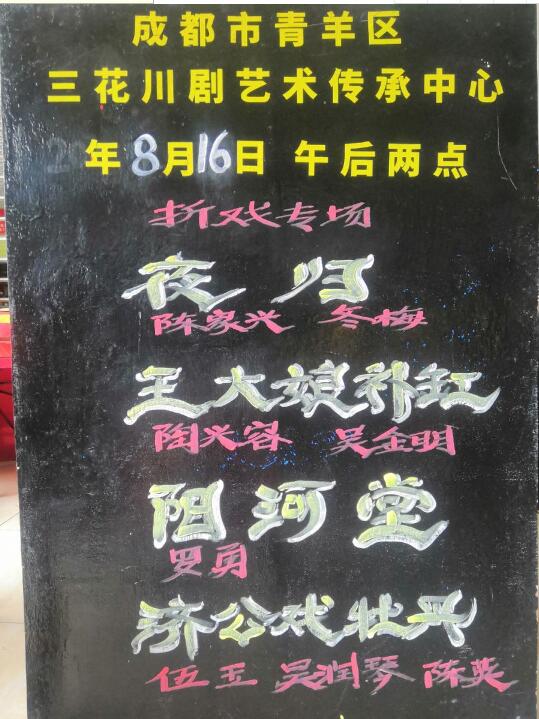 成都市青羊区
三花川剧艺术传承中心
年8月16日 午后两点
折戏专场
夜归
陈家兴 冬梅
王大娘补缸
陶兴容 吴金明
阳河堂
罗勇
济公戏牡丹
伍玉 吴润琴 陈英